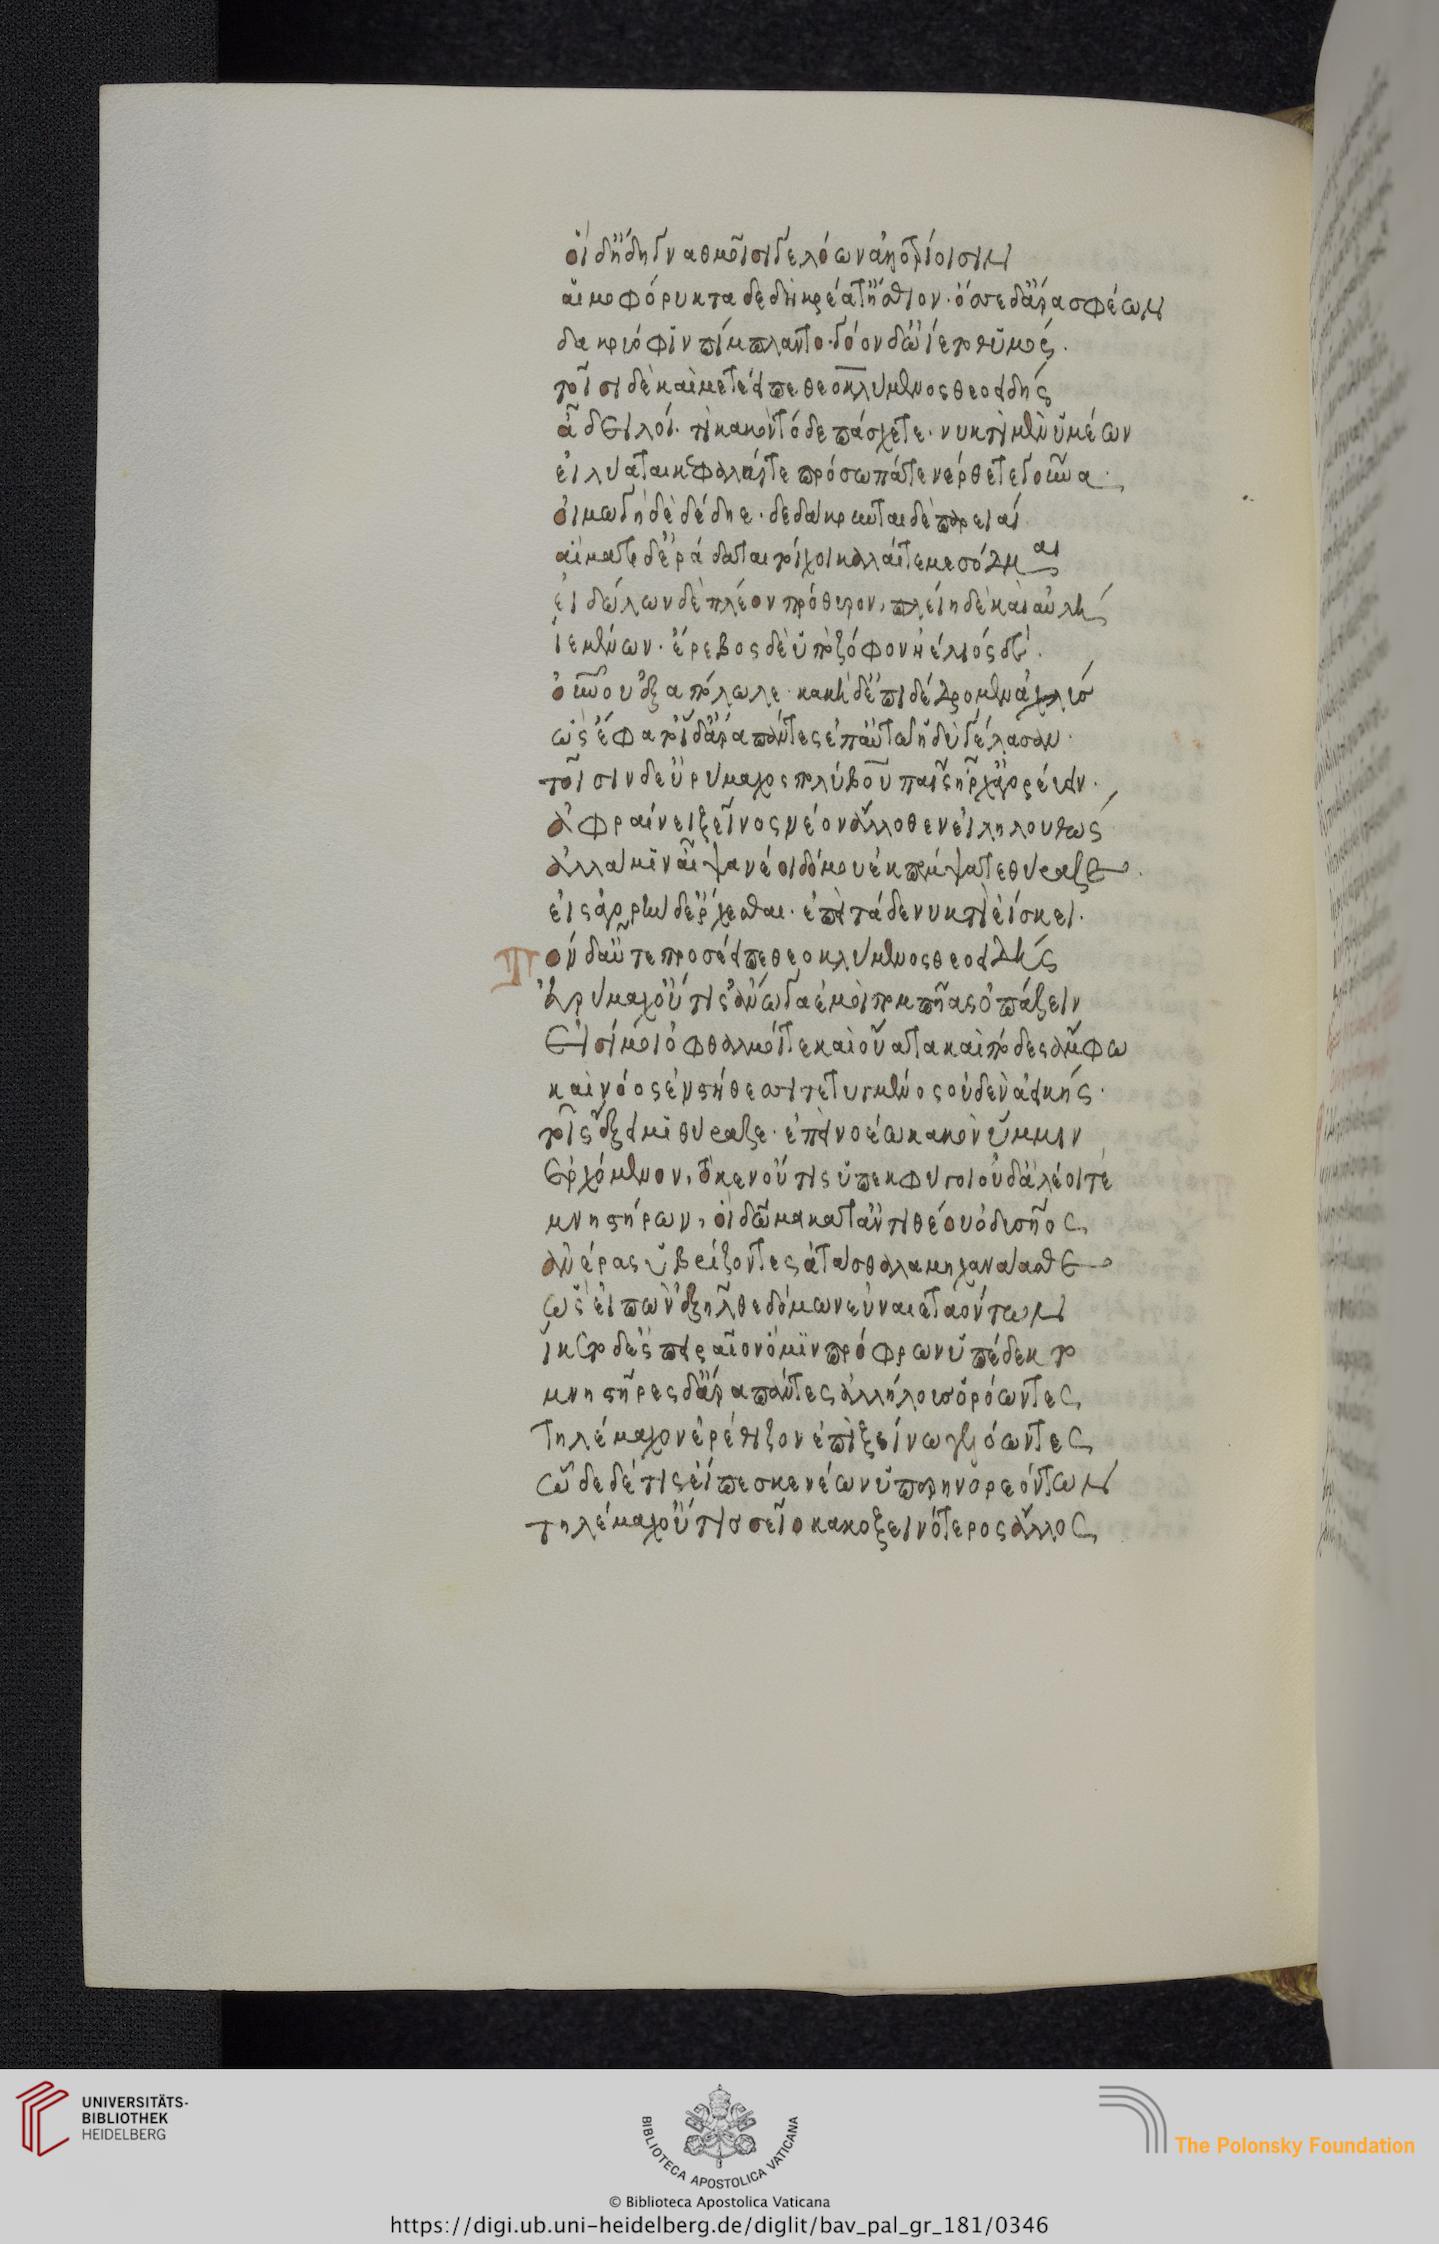 οἱ δ' ἤδη γναθμοῖσι γελόων ἀλλοτρίοισιν
αἱμοφόρυκτα δὲ δὴ κρέατ' ἤσθιον· ὄσσε δ' ἄρα σφέων
δακρυόφιν πίμπλαντο· γόον δ' ὠΐετο θυμός.
τοῖσι δὲ καὶ μετέειπε θεοκλύμενος θεοειδής
ἆ δειλοί· τί κακὸν τόδε πάσχετε· νυκτὶ μὲν ὑμέων
εἰλύαται κεφαλαί τε πρόσωπά τε νέρθε τε γοῦνα·
οἰμωγὴ δὲ δέδηε· δεδάκρυνται δὲ παρειαί
αἵματι δ' ἐρράδαται τοῖχοι καλαί τε μεσόδμαι
εἰδώλων δὲ πλέον πρόθυρον, πλείη δὲ καὶ αὐλή
ἱεμένων· ἔρεβος δὲ ὑπὸ ζόφον ἠέλιός δὲ·
οὐρανοῦ ἐξαπόλωλε· κακὴ δ' ἐπιδέδρομεν ἀχλύς
ὣς ἔφαθ' οἱ δ' ἄρα πάντες ἐπ' αὐτῶ ἡδὺ γέλασαν·
τοῖσιν δ' εὐρύμαχος πολύβου παῖς ἦρχ' ἀγορεύειν·
ἀφραίνει ξεῖνος νέον ἄλλοθεν εἰληλουθώς
ἀλλά μιν αἶψα νέοι δόμου ἐκπέμψατε θύραζε·
εἰς ἀγορὴν δ' ἔρχεσθαι· ἐπεὶ τάδε νυκτὶ ἐίσκει·
Τὸν δ' αὖτε προσέειπε θεοκλύμενος θεοειδής
εὐρύμαχ' οὔ τί σ' ἄνωγα ἐμοὶ πομπῆας ὀπάζειν
εἰσί μοι ὀφθαλμοί τε καὶ οὔατα καὶ πόδες ἄμφω
καὶ νόος ἐν στήθεσσι τετυγμένος οὐδὲν ἀεικής·
τοῖς ἔξειμι θύραζε· ἐπεὶ νοέω κακὸν ὔμμιν
ἐρχόμενον, τό κεν οὔ τις ὑπεκφύγοι οὐδ' ἀλέοιτο
μνηστήρων, οἳ δῶμα κατ' ἀντιθέου ὀδυσῆος
ἀνέρας ὑβρίζοντες ἀτάσθαλα μηχανάασθε
ὣς εἰπὼν ἐξῆλθε δόμων εὖ ναιεταόντων
ἵκετο δ' ἐς πείραιον ὅ μιν πρόφρων ὑπέδεκτο
μνηστῆρες δ' ἄρα πάντες ἀλλήλους ὁρόωντες
Τηλέμαχον ἐρέθιζον ἐπὶ ξείνω γελόωντες
ὧδε δέ τις εἴπεσκε νέων ὑπερηνορεόντων
τηλέμαχ' οὔ τις σεῖο κακοξεινότερος ἄλλος
UNIVERSITÄTS-
BIBLIOTHEK
HEIDELBERG
BIBLIOTECA APOSTOLICA VATICANA
The Polonsky Foundation
© Biblioteca Apostolica Vaticana
https://digi.ub.uni-heidelberg.de/diglit/bav_pal_gr_181/0346